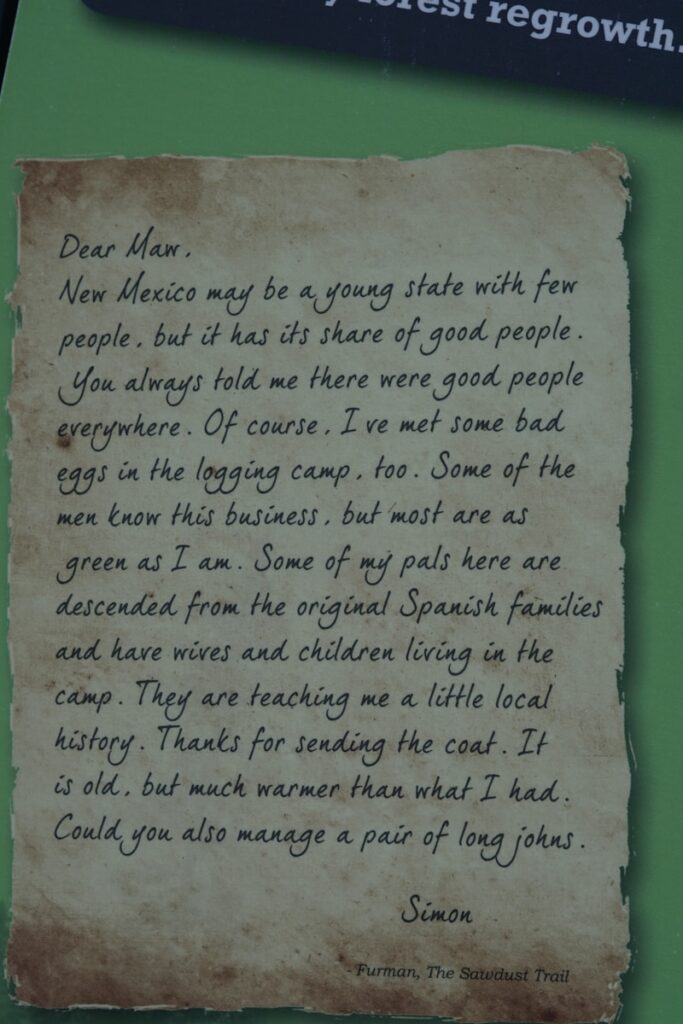 forest regrowth.
Dear Maw,
New Mexico may be a young state with few
people, but it has its share of good people.
You always told me there were good people
everywhere. Of course, I've met some bad
eggs in the logging camp, too. Some of the
men know this business, but most are as
green as I am. Some of my pals here are
descended from the original Spanish families
and have wives and children living in the
camp. They are teaching me a little local
history. Thanks for sending the coat. It
is old, but much warmer than what I had.
Could you also manage a pair of long johns.
Simon
- Furman, The Sawdust Trail